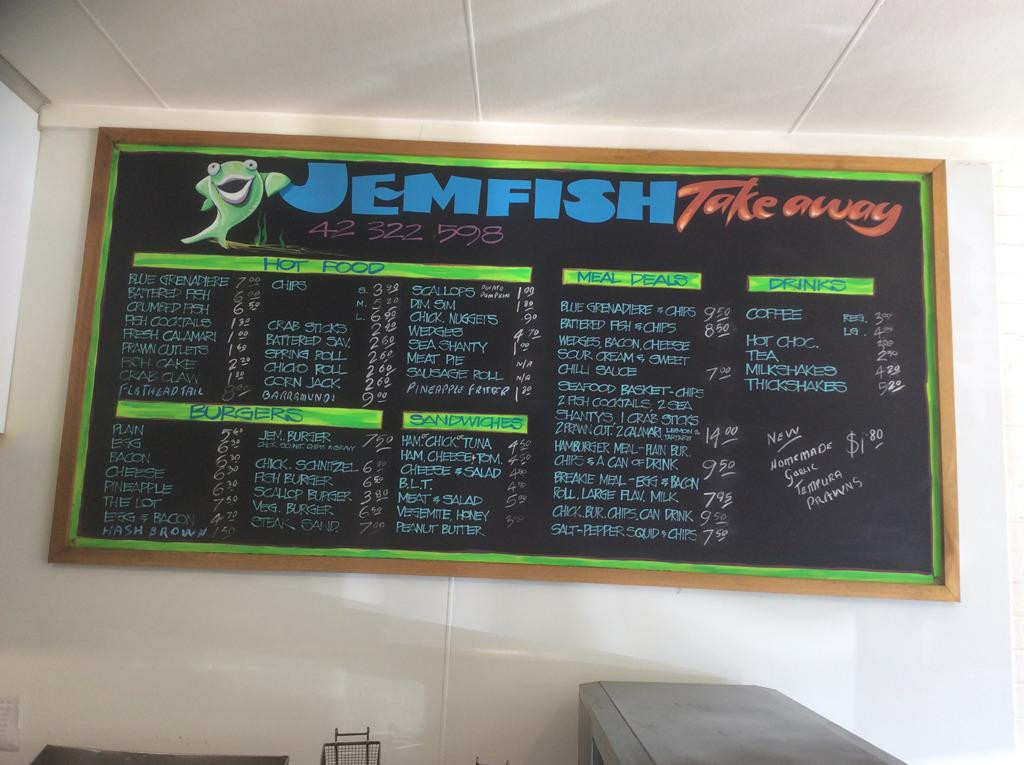 JEMFISH Take away
42 322 598
HOT FOOD
BLUE GRENADIERE 7.00
BATTERED FISH 6.00
CRUMBED FISH 6.50
FISH COCKTAILS 1.30
FRESH CALAMARI 1.00
PRAWN CUTLETS 1.60
FISH CAKE 2.10
CRAB CLAW 1.30
FLATHEAD TAIL
CHIPS S. 3.90
M. 5.20
L. 6.50
CRAB STICKS
BATTERED SAV. 2.90
SPRING ROLL 2.60
CHICKO ROLL 2.60
CORN JACK 2.60
BARRAMUNDI 9.00
SCALLOPS POTATO PUMPKIN 1.00
DIM SIM
CHICK. NUGGETS .90
WEDGES 4.70
SEA SHANTY 1.00
MEAT PIE N/A
SAUSAGE ROLL N/A
PINEAPPLE FRITTER
BURGERS
PLAIN 5.60
EGG
BACON
CHEESE
PINEAPPLE
THE LOT 7.50
EGG & BACON 4.70
HASH BROWN 1.50
JEM. BURGER 7.50
CHICK. SCHNITZEL
FISH BURGER
SCALLOP BURGER
VEG. BURGER 6.50
STEAK SAND. 7.00
SANDWICHES
HAM OR CHICK OR TUNA 4.50
HAM, CHEESE & TOM. 4.50
CHEESE & SALAD
B.L.T.
MEAT & SALAD
VEGEMITE, HONEY
PEANUT BUTTER
MEAL DEALS
BLUE GRENADIERE & CHIPS 9.50
BATTERED FISH & CHIPS 8.50
WEDGES, BACON, CHEESE
SOUR CREAM & SWEET
CHILLI SAUCE 7.00
SEAFOOD BASKET - CHIPS
2 FISH COCKTAILS, 2 SEA
SHANTYS, 1 CRAB STICKS
2 PRAWN CUT. 2 CALAMARI LEMON & TARTARE 14.00
HAMBURGER MEAL - PLAIN BUR.
CHIPS & A CAN OF DRINK 9.50
BREAKIE MEAL - EGG & BACON
ROLL, LARGE FLAV. MILK 7.95
CHICK. BUR. CHIPS, CAN DRINK 9.50
SALT - PEPPER SQUID & CHIPS 7.50
DRINKS
COFFEE REG. 3.00
LG.
HOT CHOC.
TEA 2.50
MILKSHAKES 4.20
THICKSHAKES 5.20
NEW
HOMEMADE $1.80
GARLIC
TEMPURA
PRAWNS